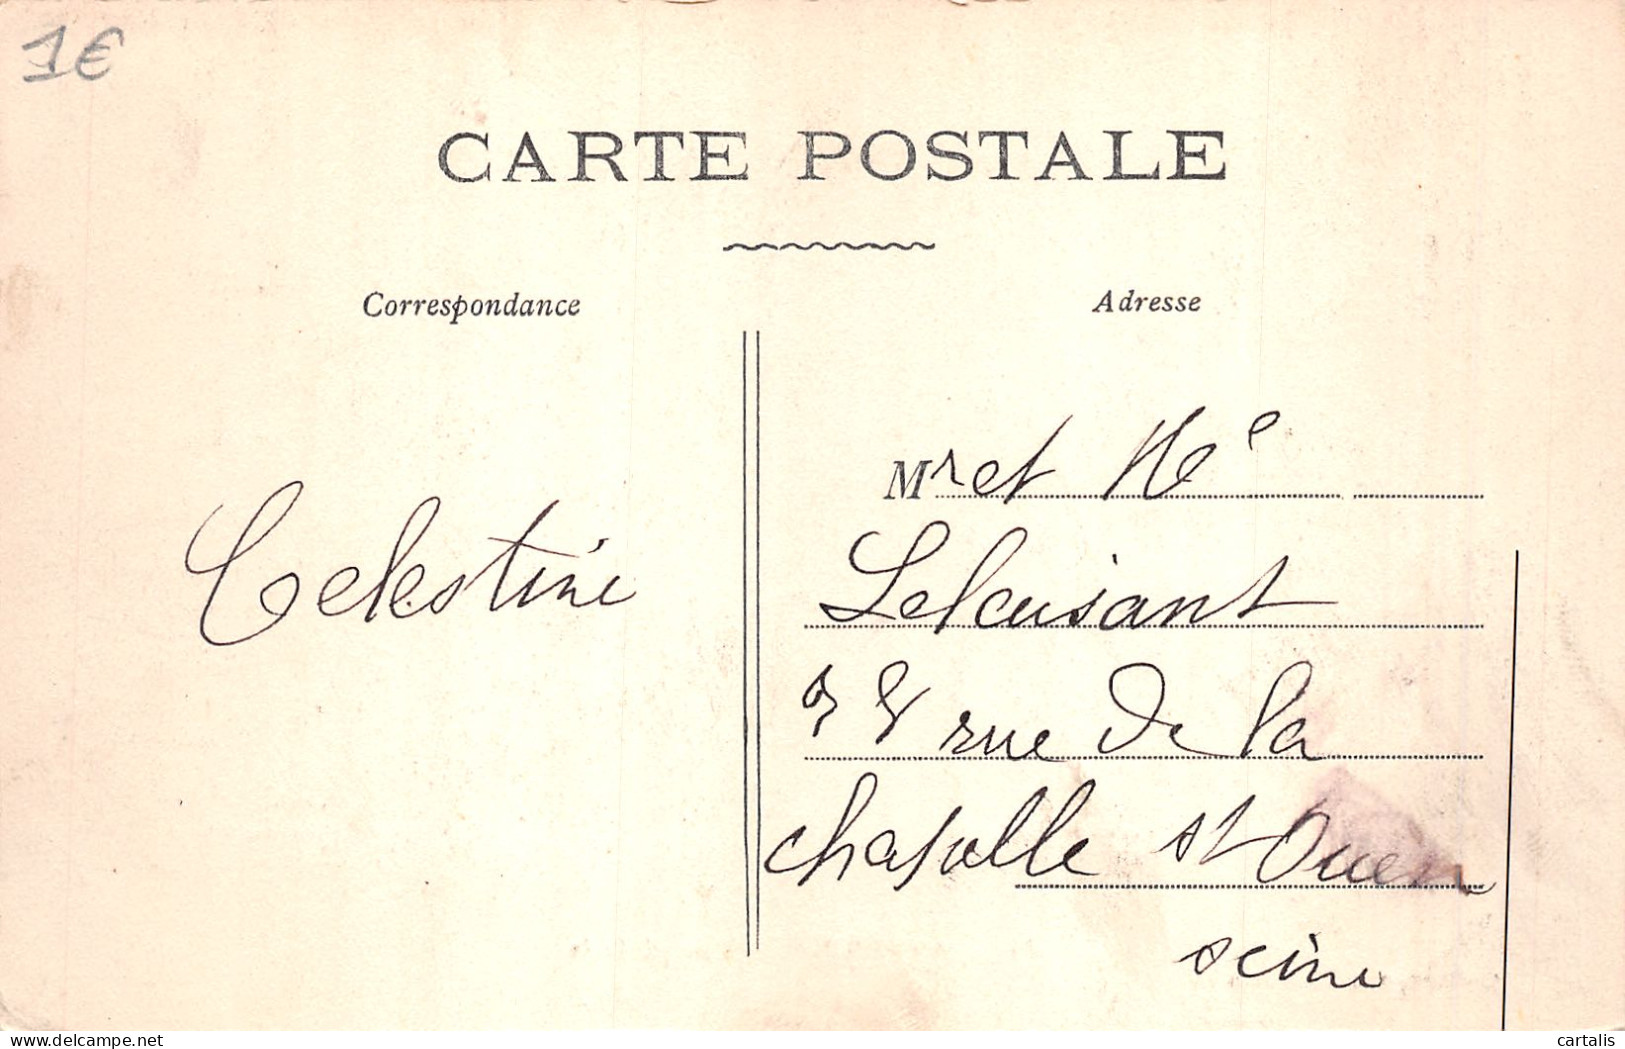 1€
CARTE POSTALE
Correspondance
Adresse
Celestine
Mr et Me
rue de la
chapelle st Ouen
seine
delcampe.net
cartalis